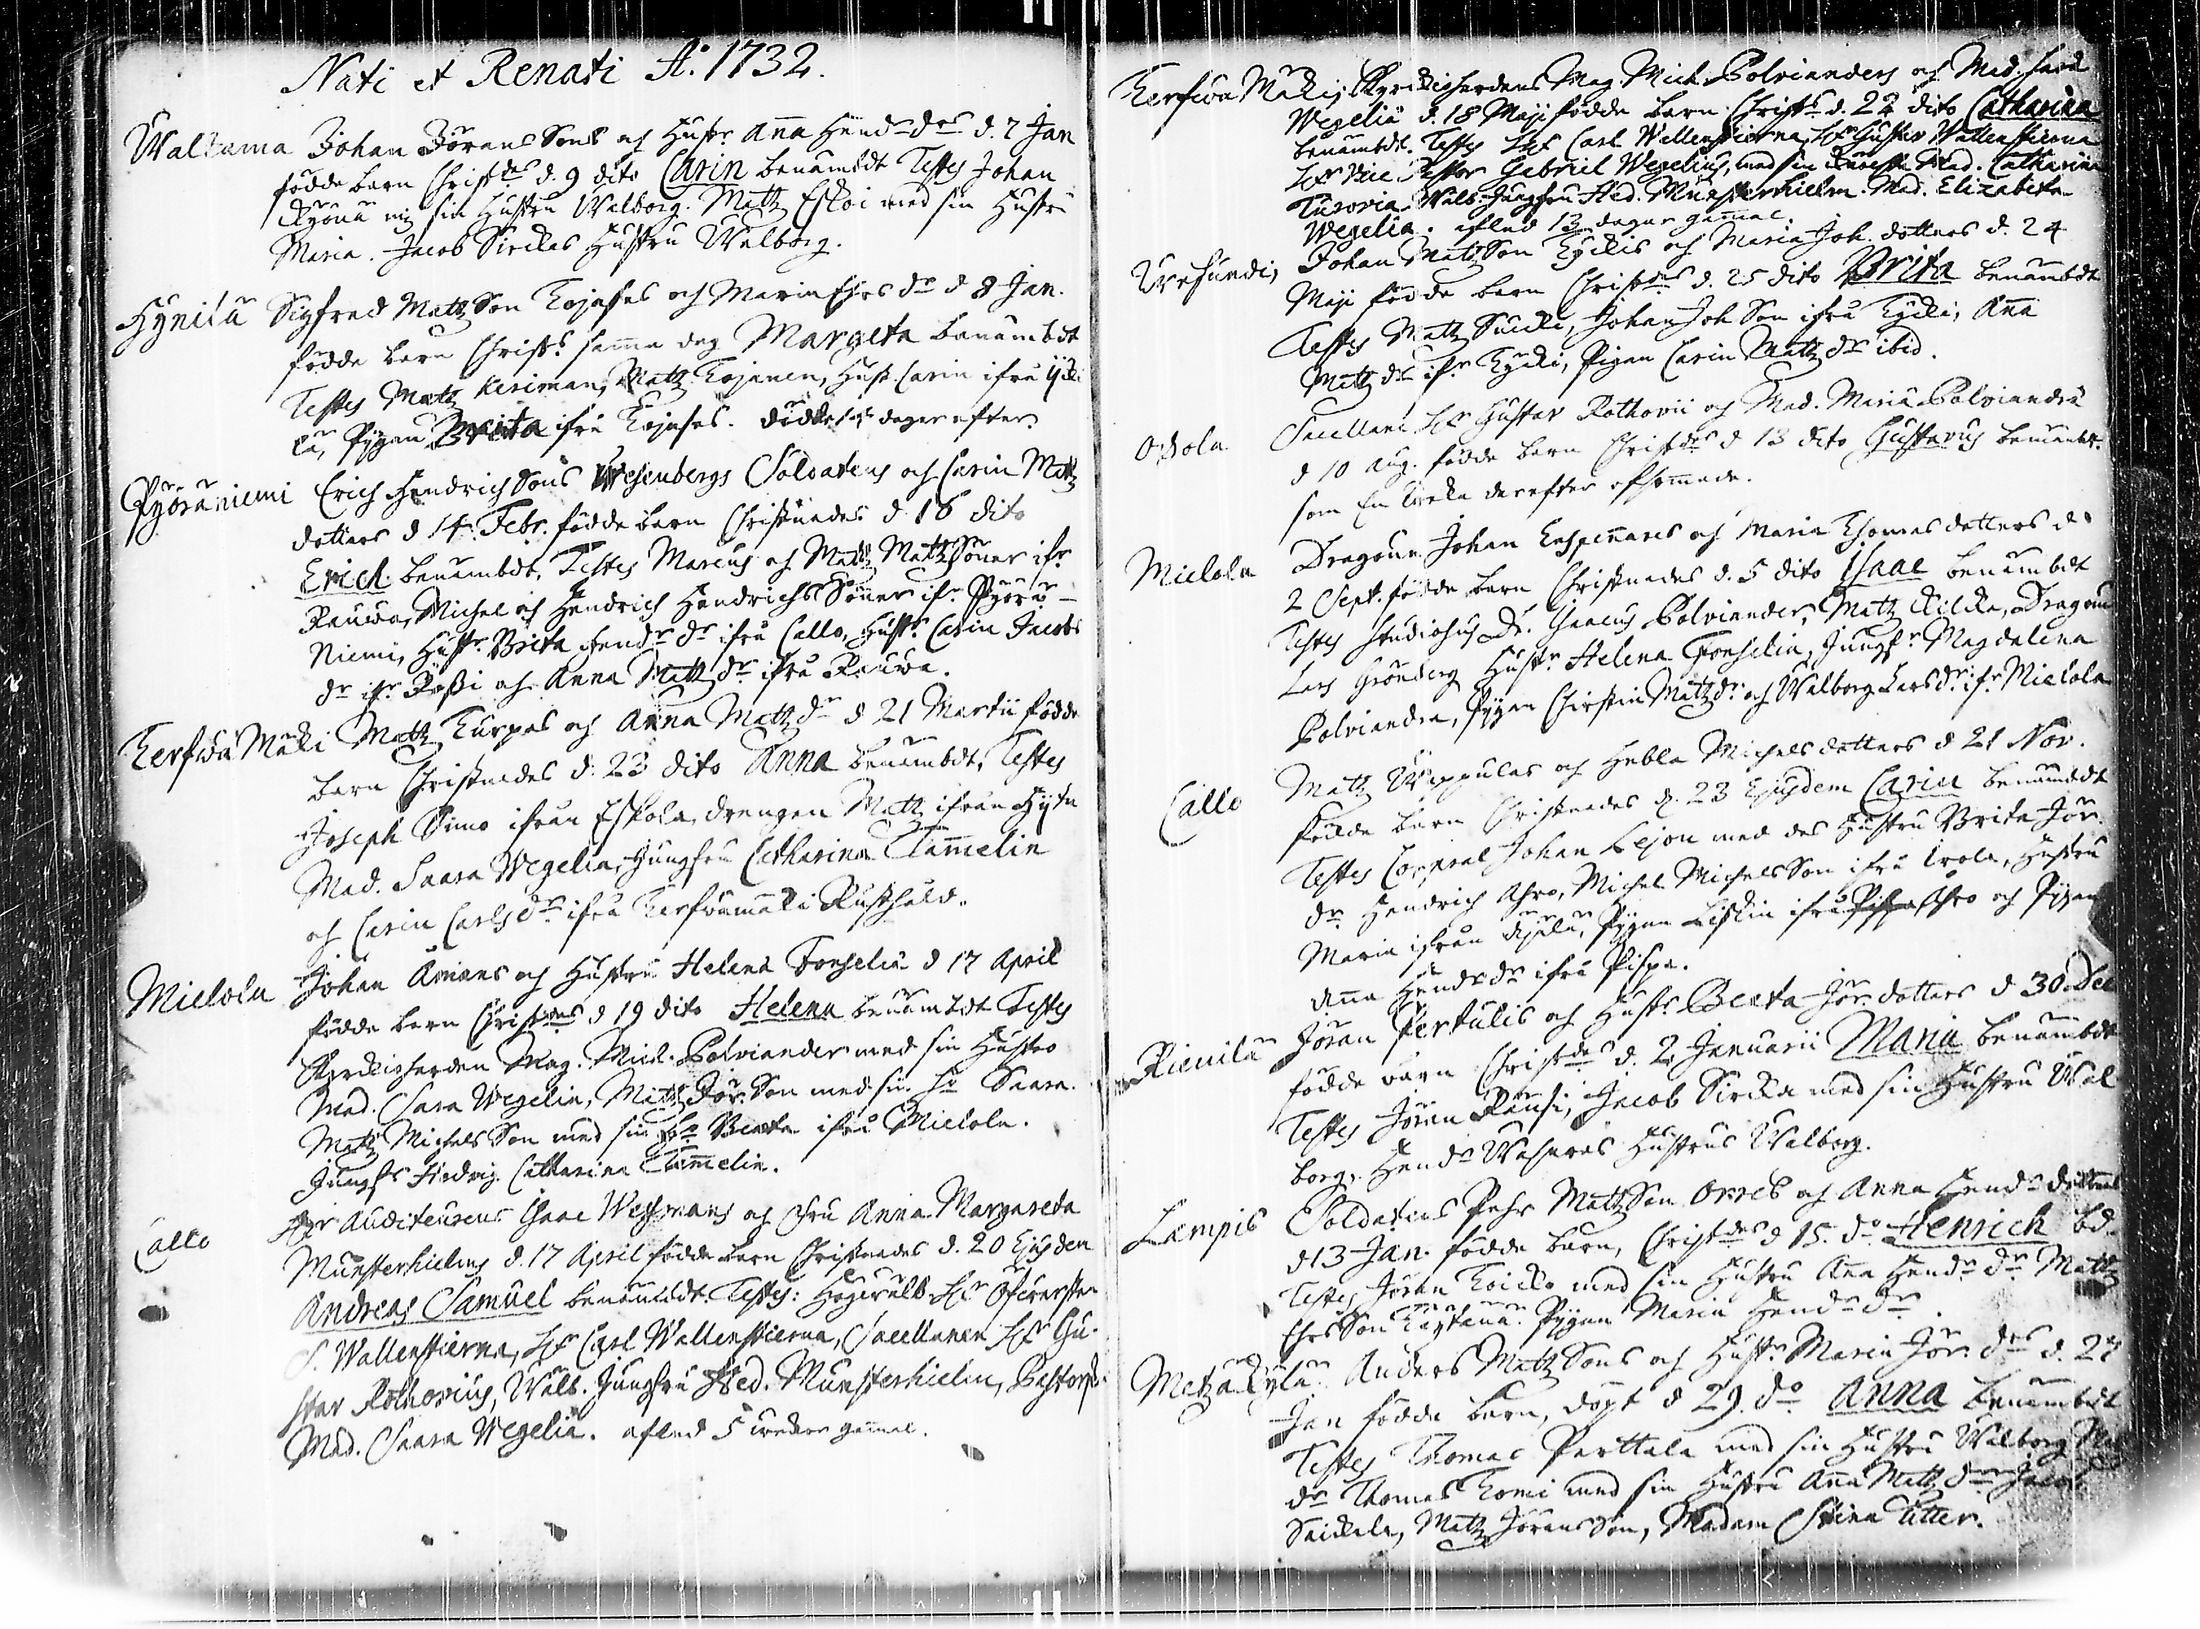 Nati et Renati A:o 1732.
Waltama Johan Jörans Sons och Hustr. Anna Hend: drs d. 7 Jan
födde barn Christdes d. 9 dito Carin benämbdt Testes Johan
sin Hustru Walborg. Matz Eskoi med sin Hustru
Maria. Jacob Sirckas Hustru Walborg.
Hynilä Sigfred Mattz Son Kojases och Maria Ehrs dr d 8 Jan.
födde barn Christ. samma dag Margeta benämbdt
Testes Matz Keriman, Matz Kojanen, Hust. Carin ifrå
Pygan Brita ifrå Kojases. dager efter.
Pyöräniemi Erich Hendrich Sons Wesenbergs Soldatens och Carin Matz
dotters d 14 Febr. födde barn Christnades d. 16 dito
Erich benämbdt, Testes Marcus och Matz Mattz Söner ifr.
Rauwa, Michel och Hendrich Hendrichs Söner ifr. Pyörä-
Niemi, Hustr. Brita Hendr. dr ifrå Callo, Hustr. Carin Jacobs
dr ifr. Rässi och Anna Matt dr ifrå Rauwa.
Kerfwä Mäki Matz Kurpas och Anna Matz dr d 21 Martii födde
barn Christnades d. 23 dito Anna benämbdt, Testes
Joseph Simo ifrån Eskola, drengen Matz ifrån
Mad. Saara Wegelia, Jungfru Catharina Tammelin
och Carin Carls dr ifrå Kerfwämäki Rusthald.
Mielola Johan Arnians och Hustru Helena Fonselia d 17 April
födde barn Christdes d 19 dito Helena benämbdt Testes
Kyrckioherden Mag. Mich. Polviander med sin Hustro
Mad. Sara Wegelia, Matz Jör. Son med sin Hr Saara.
Matz Michels Son med sin Hr Beata ifrå Mielola.
Jungfr Hedvig Catharina Tammelin.
Callo Hr Auditeurens Isaac Wessmans och Fru Anna Margareta
Munsterhielms d. 17 April födde barn Christnades d. 20 Ejusdem
Andreas Samuel benämbdt. Testes: Höge Hr Öfwersten
S. Wallenstierna, Hr Carl Wallenstierna, Sacellanen Hr Gu-
stav Rothovius, Wälb. Jungfru Hed. Munsterhielm, Pastorsk.
Mad. Saara Wegelia. afled 5 weckor gammal.
Kerfwä Mäki, Kyrckioherdens Mag. Mich. Polvianders och Mad. Sara
Wegeliæ d. 18 Maji födde barn Christ. d. 22 dito Catharina
benämbdt. Testes Hr Carl Wallenstierna, Hr Gustav Wallenstierna
Hr Vice Pastor Gabriel Wegelius, med sin Mad. Catharina
Tusovia Wälb. Jungfru Hed. Munsterhielm. Mad. Elizabeta
Wegelia. afled 13 dagar gammal.
Johan Matz Son Kyckis och Maria Joh. dotters d. 24
Maji födde barn Christdes d. 25 dito Brita benämbdt
Testes Matz Suicki, Johan Joh Son ifrå Kycki, Anna
Matz dr ifr. Kycki, Pigan Carin Matz dr ibid.
Ojola Sacellani Hr Gustav Rothovii och Mad. Maria Polviandra
d 10 Aug. födde barn Christdes d 13 dito Gustavus benämbdt.
som en derefter afsomnade.
Mielola Dragoun Johan Enspennares och Maria Thomas dotters d.
2 Sept. födde barn Christnades d. 5 dito Isaac benämbdt
Testes Studiosus Dr. Isacus Polviander, Matz Kilcka, Dragoun
Lars Grönberg Hustr. Helena Fonselia, Jungfr. Magdalena
Polviandra, Pygan Christin Matz dr och Walborg Lars dr. ifr. Mielola
Callo Matz Wippulas och Hebla Michelsdotters d 21 Nov.
födde barn Christnades d. 23 Ejusdem Carin benämbdt
Testes Corporal Johan Lejon med des Hustru Brita Jör.
dr. Hendrich Ahro, Michel Michels Son ifrå Erola, Hustru
Maria ifrån Pygan Liskin ifrå Ahro och Pygan
Anna Hendr dr ifrå Pispa.
Rienilä Jöran Pertulis och Hustr. Beata Jör. dotters d 30 Dec
födde barn Christdes d. 2 Januarii Maria benämbdt
Testes Jöran Ränsi, Jacob Sircka med sin Hustru Wal-
borg. Hendr Hustrus Walborg.
Lempis Soldatens Pehr Mattz Son Orres och Anna Hendr dotters
d 13 Jan. födde barn, Christdes d 15. do Henrich bd.
Testes Jöran Koicko med sin Hustru Anna Hendr. dr Mattz
Ehrs Son Pygan Maria Hendr dr
Metzäkylä Anders Matz Sons och Hustr. Maria Jör. drs d. 27
Jan födde barn, döpt d 29. do Anna benämbdt
Testes Thomas Perttala med sin Hustru Walborg
dr Thomas Komi med sin Hustru Anna Matz dr Jacob
Saickala, Matz Jörans Son, Madam Stina Litter.